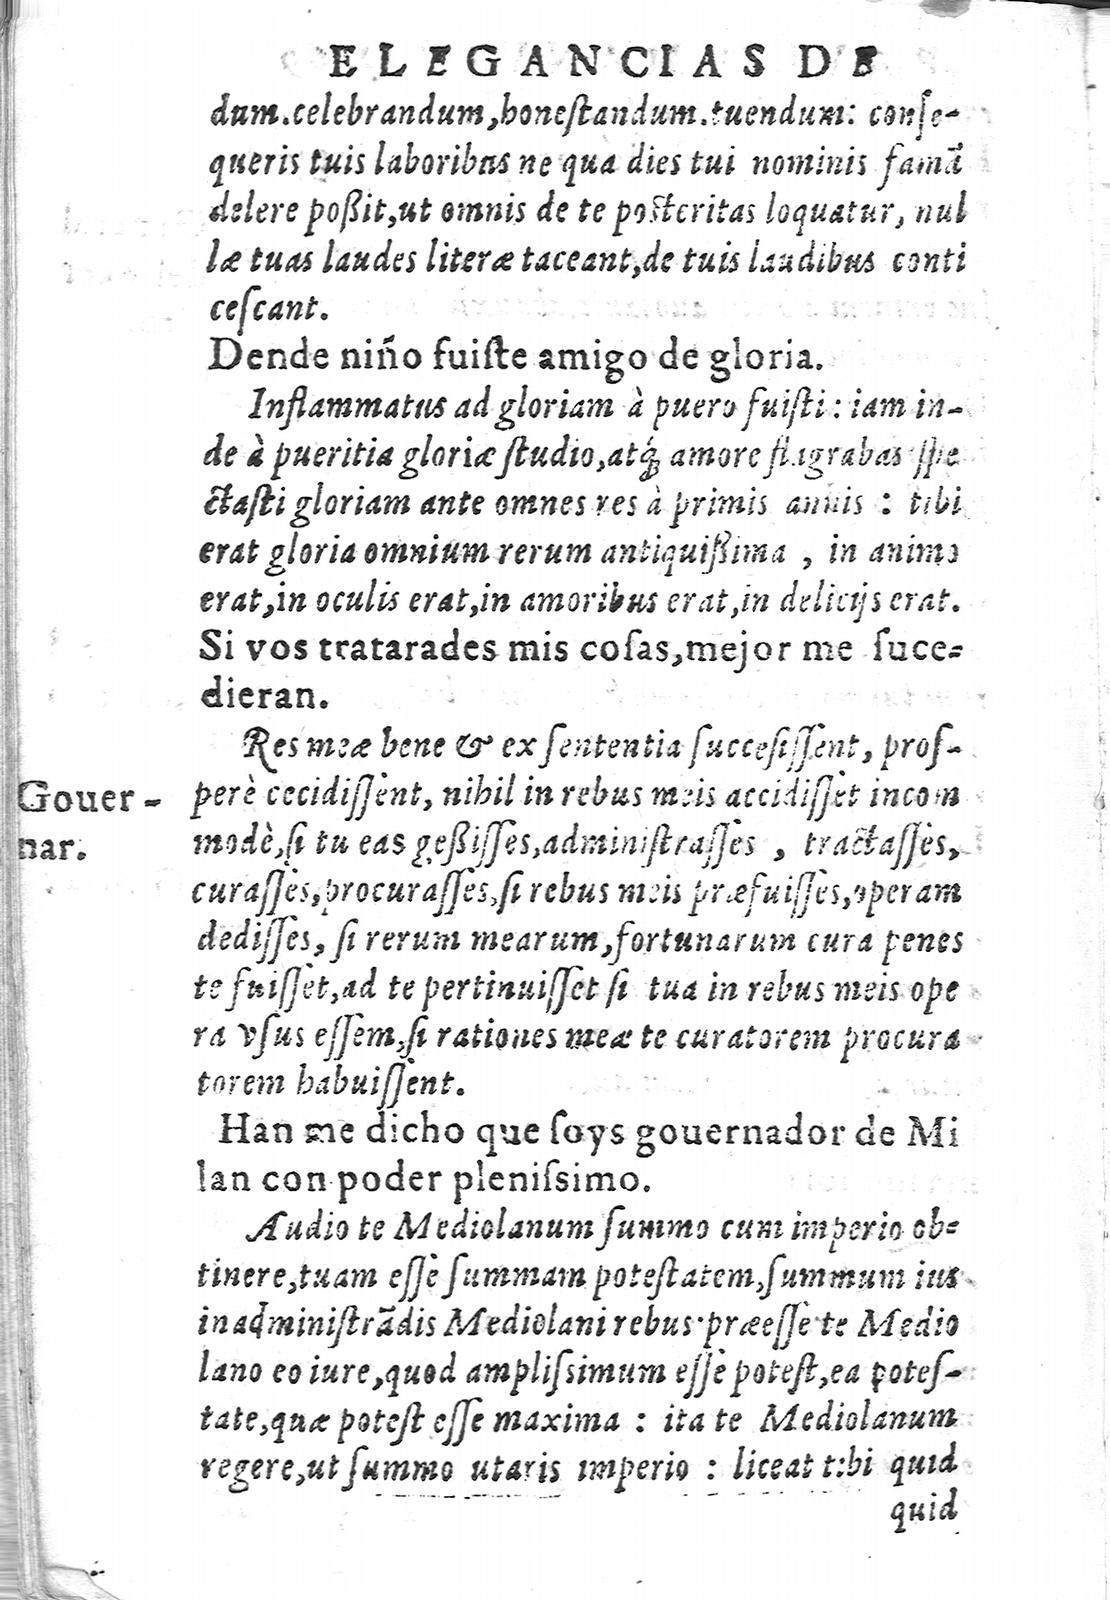 ELEGANCIAS DE
dum.celebrandum,honeſtandum.tuendum: conſe-
queris tuis laboribus ne qua dies tui nominis famã
delere poßit,ut omnis de te poſteritas loquatur, nul
læ tuas laudes literæ taceant,de tuis laudibus conti
ceſcant.
Dende niño fuiſte amigo de gloria.
Inflammatus ad gloriam à puero fuiſti: iam in-
de à pueritia gloriæ ſtudio,atq́; amore flagrabas ſpe
ctaſti gloriam ante omnes res à primis annis : tibi
erat gloria omnium rerum antiquißima , in animo
erat,in oculis erat,in amoribus erat,in delicijs erat.
Si vos tratarades mis coſas,mejor me ſuce-
dieran.
Res meæ bene & ex ſententia ſucceſiſſent, proſ-
Gouer-
nar.
perè cecidiſſent, nihil in rebus meis accidiſſet incom
modè,ſi tu eas geßiſſes,adminiſtraſſes , tractaſſes,
curaſſes,procuraſſes,ſi rebus meis præfuiſſes,operam
dediſſes, ſi rerum mearum,fortunarum cura penes
te fuiſſet,ad te pertinuiſſet ſi tua in rebus meis ope
ra vſus eſſem,ſi rationes meæ te curatorem procura
torem habuiſſent.
Han me dicho que ſoys gouernador de Mi
lan con poder pleniſsimo.
Audio te Mediolanum ſummo cum imperio ob-
tinere,tuam eſſe ſummam poteſtatem,ſummum ius
in adminiſtrãdis Mediolani rebus præeſſe te Medio
lano eo iure,quod ampliſsimum eſſe poteſt,ea poteſ-
tate,quæ poteſt eſſe maxima : ita te Mediolanum
regere,ut ſummo utaris imperio : liceat tibi quid
quid